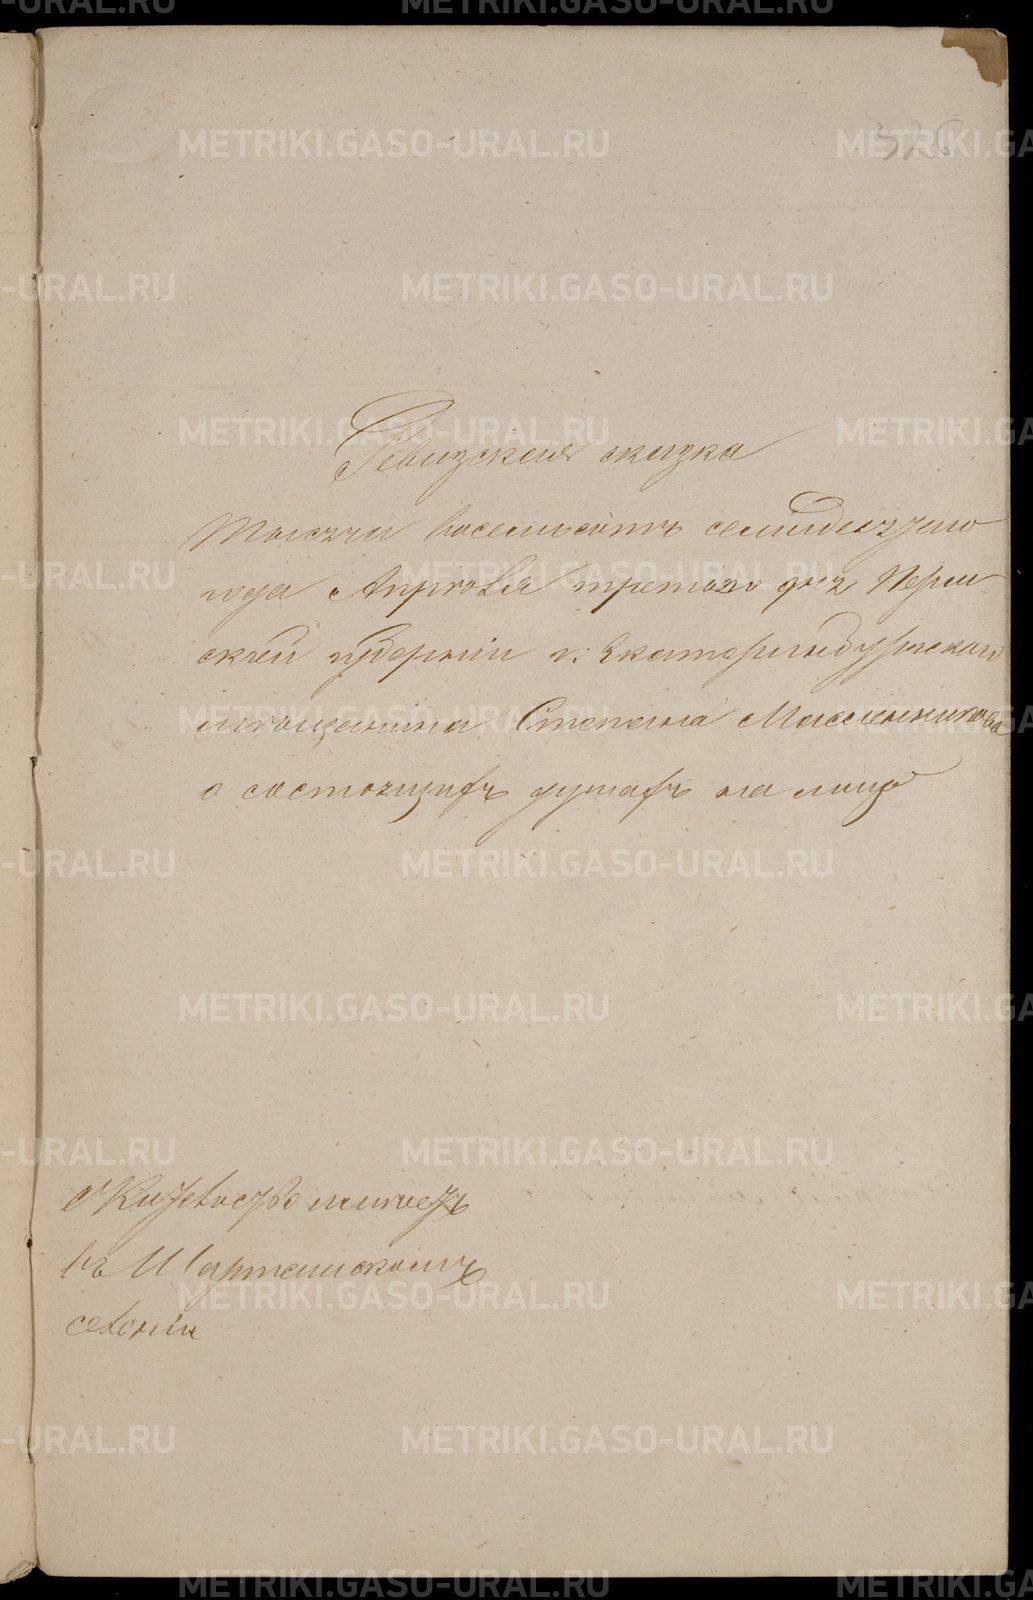 326
Ревизская сказка
Тысячи восемьсотъ семидесятаго
года Апрѣля третьяго дня Перм
ской губерніи г: Екатеринбургскаго
мѣщанина Степана Масленникова
о состоящихъ душахъ на лицо
Жительство имѣетъ
въ Шарташскомъ
селеніи
METRIKI.GASO-URAL.RU